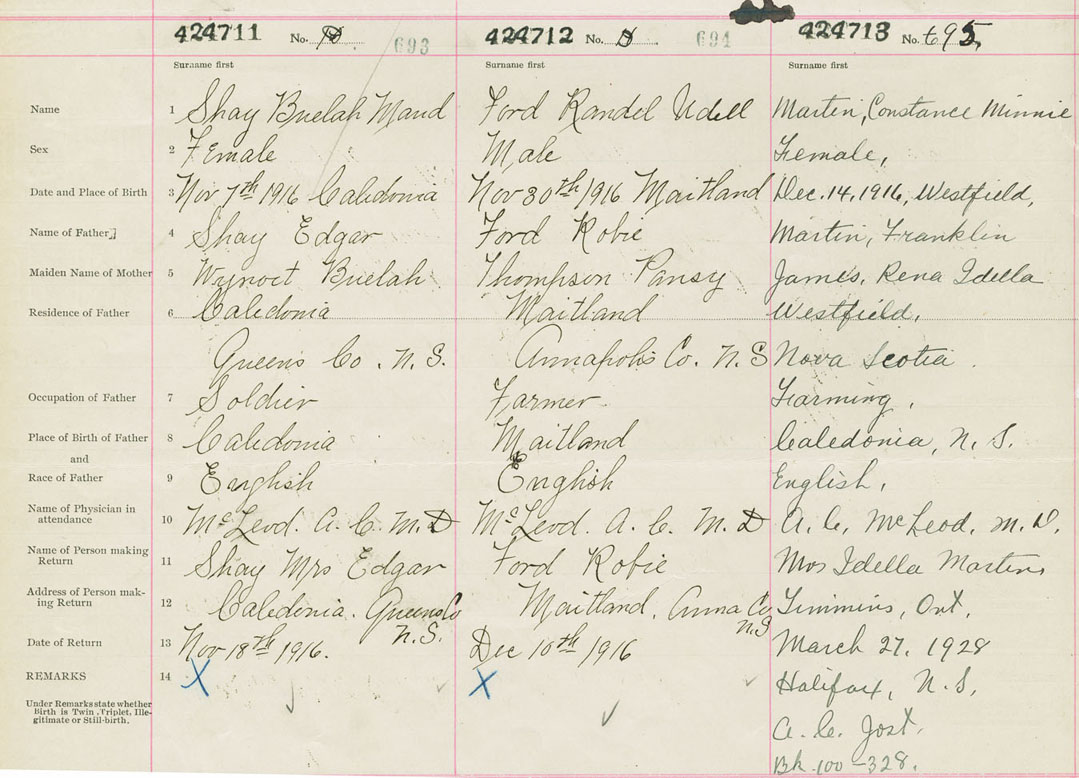 424711 No. D 693 424712 No. D 694 424713 No. 695
Surname first Surname first Surname first
Name 1 Shay Buelah Maud Ford Randel Udell Martin, Constance Minnie
Sex 2 Female Male Female,
Date and Place of Birth 3 Nov 7th 1916 Caledonia Nov 30th 1916 Maitland Dec. 14, 1916, Westfield,
Name of Father 4 Shay Edgar Ford Robie Martin, Franklin
Maiden Name of Mother 5 Buelah Thompson Pansy James, Rena Idella
Residence of Father 6 Caledonia Maitland Westfield,
Queens Co. N. S. Annapolis Co. N. S Nova Scotia.
Occupation of Father 7 Soldier Farmer Farming,
Place of Birth of Father 8 Caledonia Maitland Caledonia, N. S.
and
Race of Father 9 English English English,
Name of Physician in
attendance 10 McLeod. A. C. M. D McLeod. A. C. M. D A. C. McLeod, M. D.
Name of Person making
Return 11 Shay Mrs Edgar Ford Robie Mrs Idella Martin
Address of Person mak-
ing Return 12 Caledonia. Queens Co N.S. Maitland. Anna Co N.S Timmins, Ont.
Date of Return 13 Nov 18th 1916. Dec 10th 1916 March 27, 1928
REMARKS 14 X X Halifax, N. S,
Under Remarks state whether
Birth is Twin, Triplet, Ille-
gitimate or Still-birth.
A. C. Jost.
Bk. 100-328.